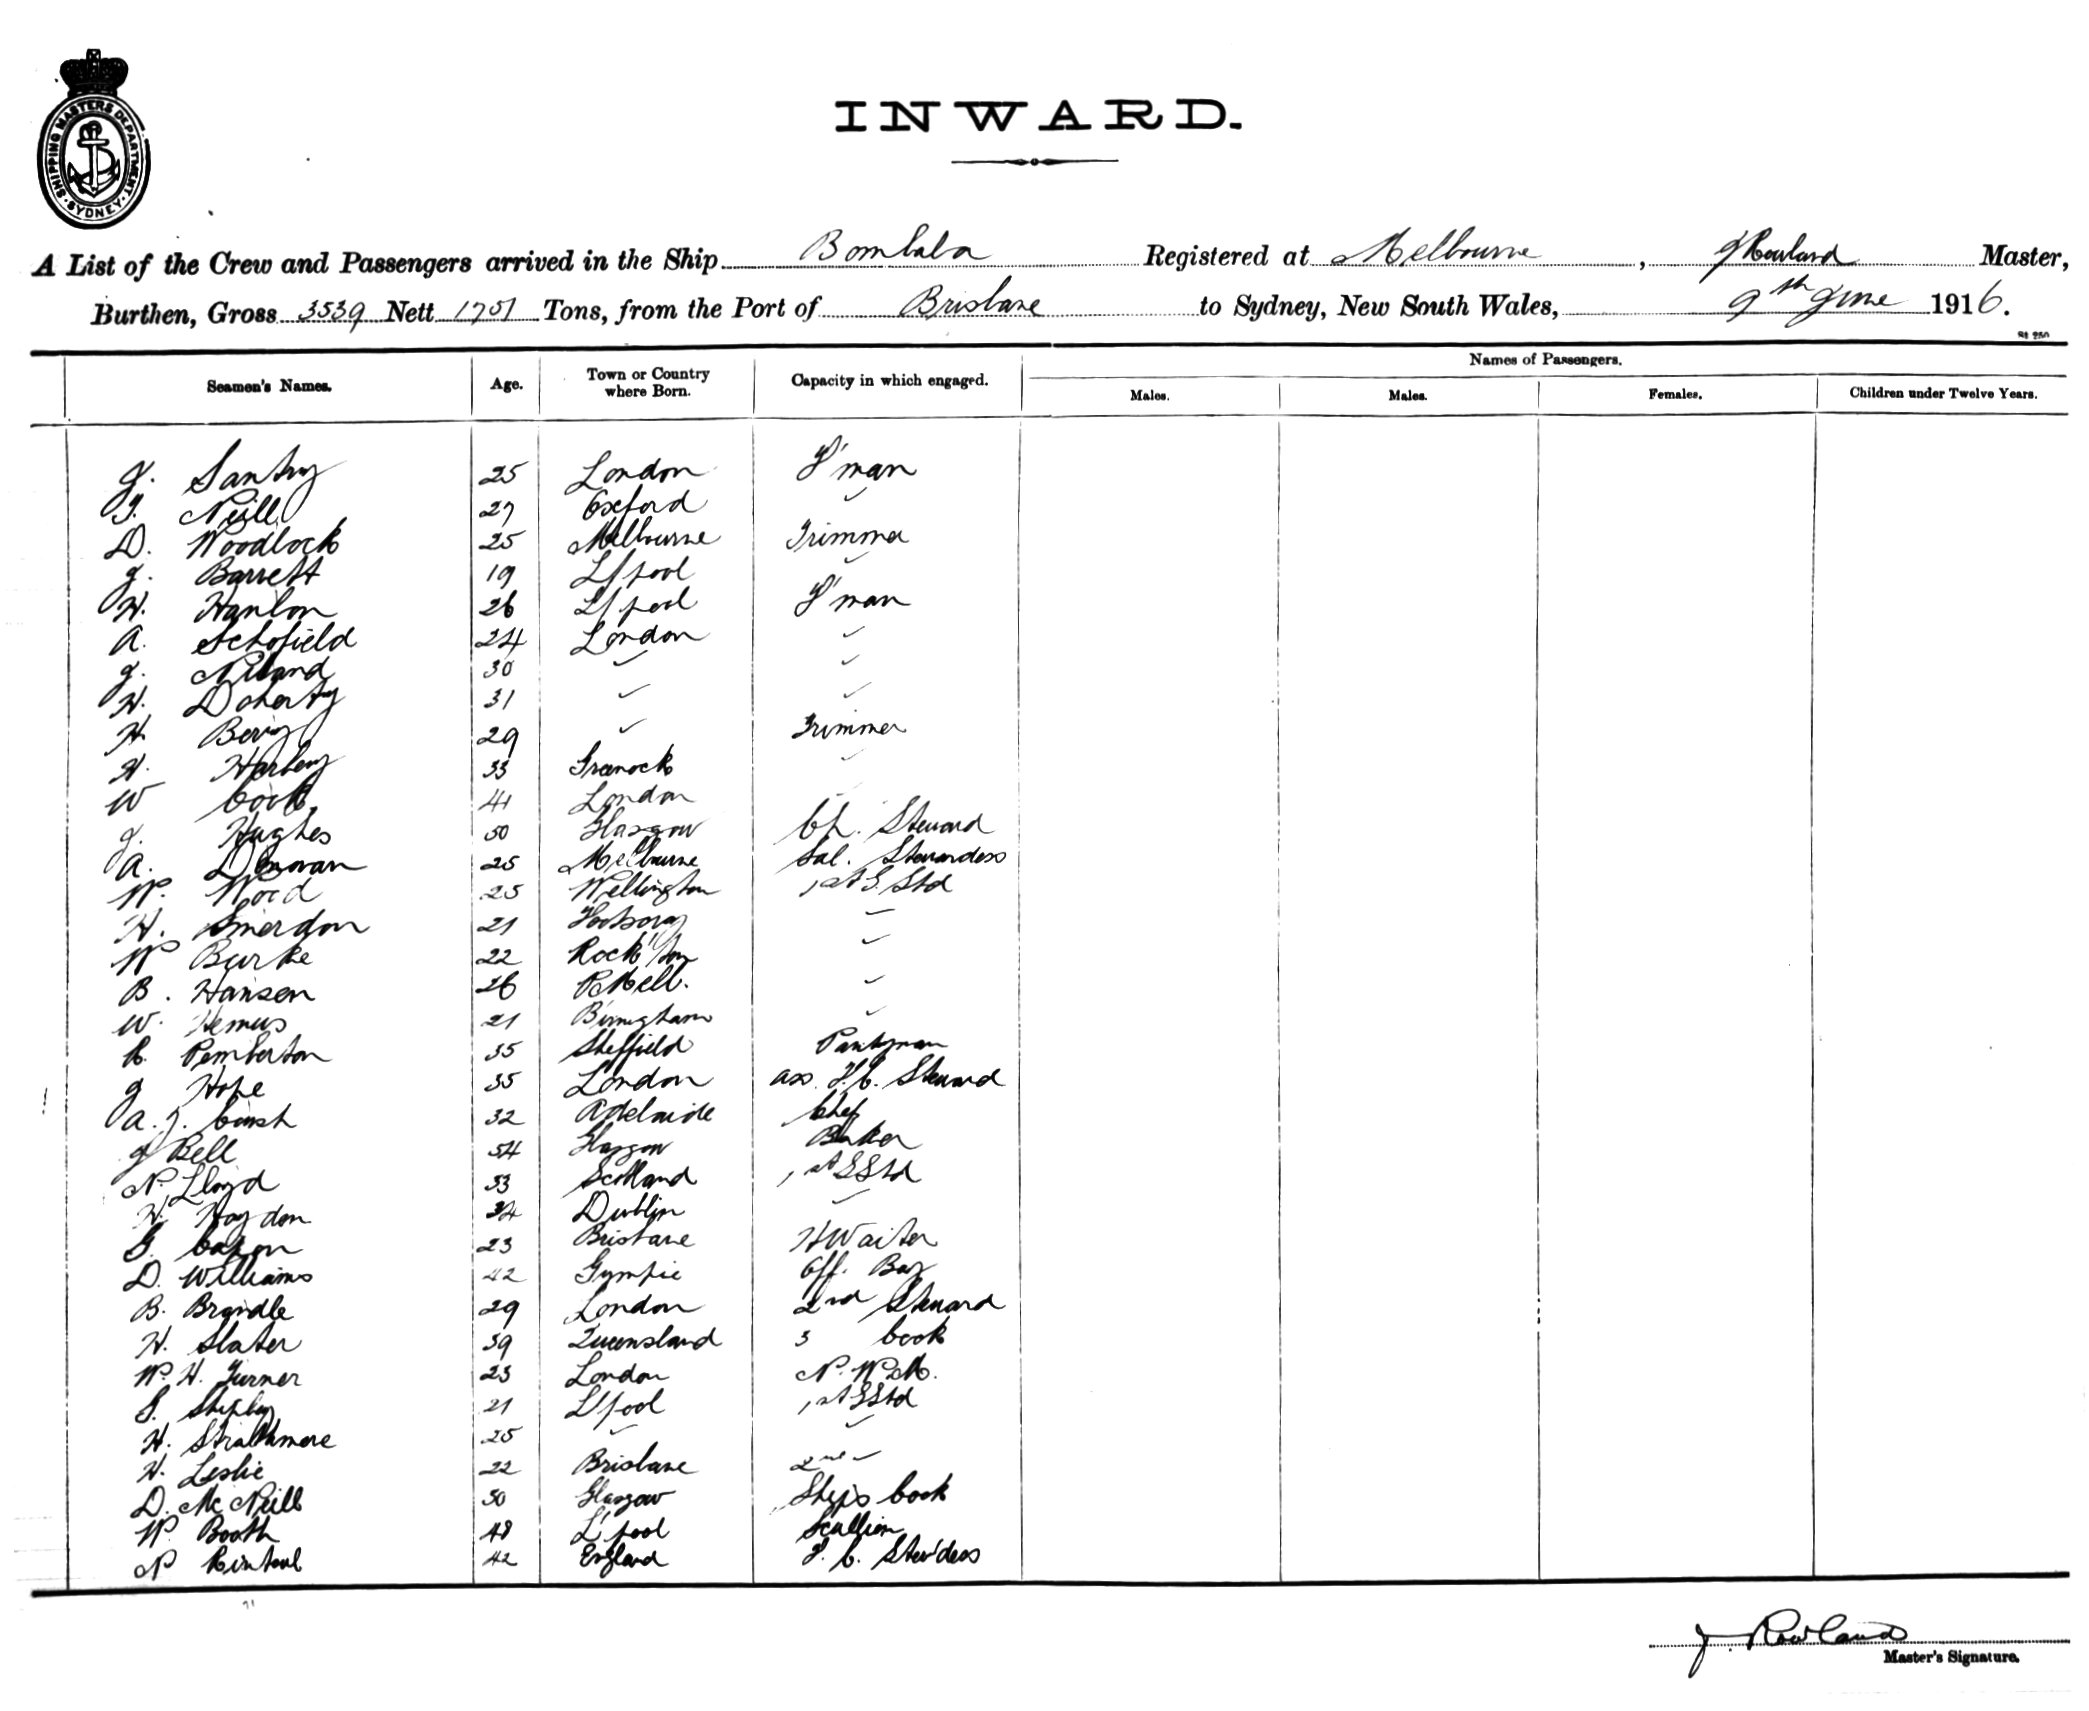 SHIPPING MASTERS DEPARTMENT. SYDNEY
INWARD.
A List of the Crew and Passengers arrived in the Ship Bombala Registered at Melbourne, J Rowland Master,
Burthen, Gross 3539 Nett 1751 Tons, from the Port of Brisbane to Sydney, New South Wales, 9th June 1916.
Names of Passengers.
Seamen's Names. Age. Town or Country where Born. Capacity in which engaged. Males. Males. Females. Children under Twelve Years.
J. Santry 25 London F'man
J. Neill 27 Oxford ✓
D. Woodlock 25 Melbourne Trimmer
J. Barrett 19 L'pool ✓
W. Hanlon 26 L'pool F'man
A. Schofield 24 London ✓
J. Niland 30 ✓ ✓
W. Doherty 31 ✓ ✓
H. Berry 29 ✓ Trimmer
H. 33 Greenock ✓
W Cook 41 London
J. Hughes 50 Glasgow Ch. Steward
A. Donovan 25 Melbourne Sal. Stewardess
W. Wood 25 Wellington 1st S. Std
H. Smerdon 21 Footscray ✓
W Burke 22 Rock'ton ✓
B. Hansen 26 P Mell. ✓
W. Hemus 21 Birmgham ✓
R. Pemberton 35 Sheffield Pantryman
J Hope 35 London ass. F.C. Steward
A. J. Cush 32 Adelaide Chef
J Bell 54 Glasgow Baker
N. Lloyd 33 Scotland 1st S Std
W. Haydon 34 Dublin ✓
G. Capon 23 Brisbane H Waiter
D. Williams 42 Gympie Off. Boy
B. Brandle 29 London 2nd Steward
H. Slater 39 Queensland 3 Cook
W. H. Turner 23 London N. W M.
S. Shipley 21 L'pool 1st S Std
H. Strathmore 25 ✓ ✓
H. Leslie 22 Brisbane 2nd ✓
D. McNeill 50 Glasgow Ships Cook
W. Booth 48 L'pool Scullion
N Rintoul 42 England F. C. Stew'dess
J. Rowland
Master's Signature.